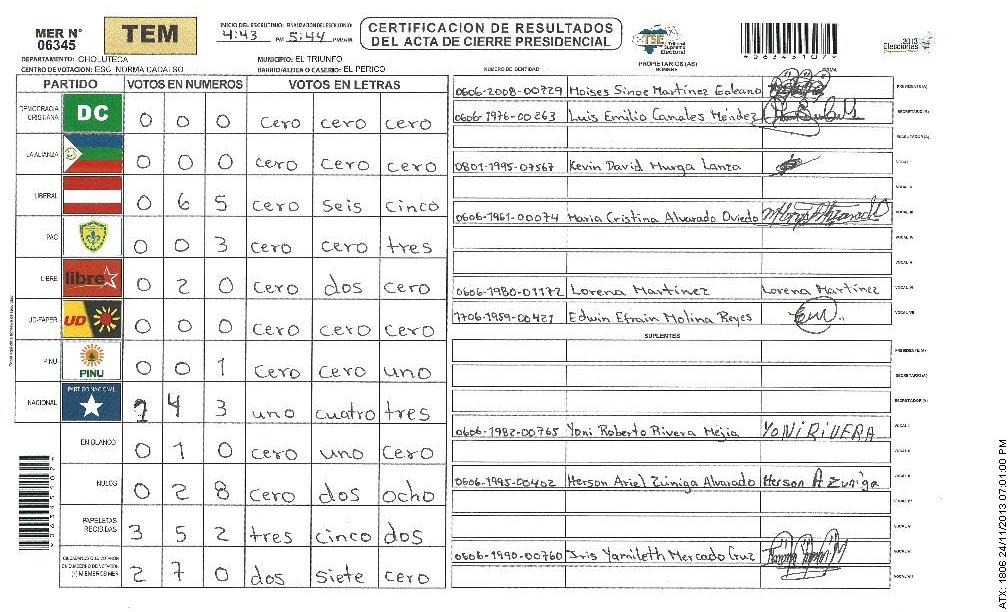 MER N° 06345
TEM
INICIO DEL ESCRUTINIO: FINALIZACION DEL ESCRUTINIO:
4:43 PM 5:44 PM/AM.
CERTIFICACION DE RESULTADOS
DEL ACTA DE CIERRE PRESIDENCIAL
TSE Tribunal Supremo Electoral
2013 Elecciones
DEPARTAMENTO: CHOLUTECA
MUNICIPIO: EL TRIUNFO
CENTRO DE VOTACION: ESC. NORMA CADALSO
BARRIO/ALDEA O CASERIO: EL PERICO
NUMERO DE IDENTIDAD
PROPIETARIOS (AS)
NOMBRE
FIRMA
PARTIDO VOTOS EN NUMEROS VOTOS EN LETRAS
DEMOCRACIA CRISTIANA DC 0 0 0 cero cero cero
LA ALIANZA 0 0 0 cero cero cero
LIBERAL 0 6 5 cero seis cinco
PAC 0 0 3 cero cero tres
LIBRE libre 0 2 0 cero dos cero
UD-FAPER UD 0 0 0 cero cero cero
PINU PINU 0 0 1 cero cero uno
NACIONAL PARTIDO NACIONAL 1 4 3 uno cuatro tres
EN BLANCO 0 1 0 cero uno cero
NULOS 0 2 8 cero dos ocho
PAPELETAS RECIBIDAS 3 5 2 tres cinco dos
CIUDADANOS QUE VOTARON EN CUADERNO DE VOTACION (+) MIEMBROS MER 2 7 0 dos siete cero
0606-2008-00729 Moises Sinoe Martinez Galeano PRESIDENTE(A)
0606-1976-00263 Luis Emilio Canales Méndez SECRETARIO(A)
ESCRUTADOR(A)
0801-1995-07567 Kevin David Murga Lanza VOCAL I
VOCAL II
0606-1961-00074 Maria Cristina Alvarado Oviedo VOCAL III
VOCAL IV
VOCAL V
0606-1980-01172 Lorena Martinez Lorena Martinez VOCAL VI
1706-1959-00421 Edwin Efrain Molina Reyes VOCAL VII
SUPLENTES
PRESIDENTE(A)
SECRETARIO(A)
ESCRUTADOR(A)
0606-1982-00765 Yoni Roberto Rivera Mejia YONI RIVERA VOCAL I
VOCAL II
0606-1995-00402 Herson Ariel Zuniga Alvarado Herson A Zuniga VOCAL III
VOCAL IV
VOCAL V
0606-1990-00760 Iris Yamileth Mercado Cruz VOCAL VI
VOCAL VII
ATX: 1806 24/11/2013 07:01:00 PM